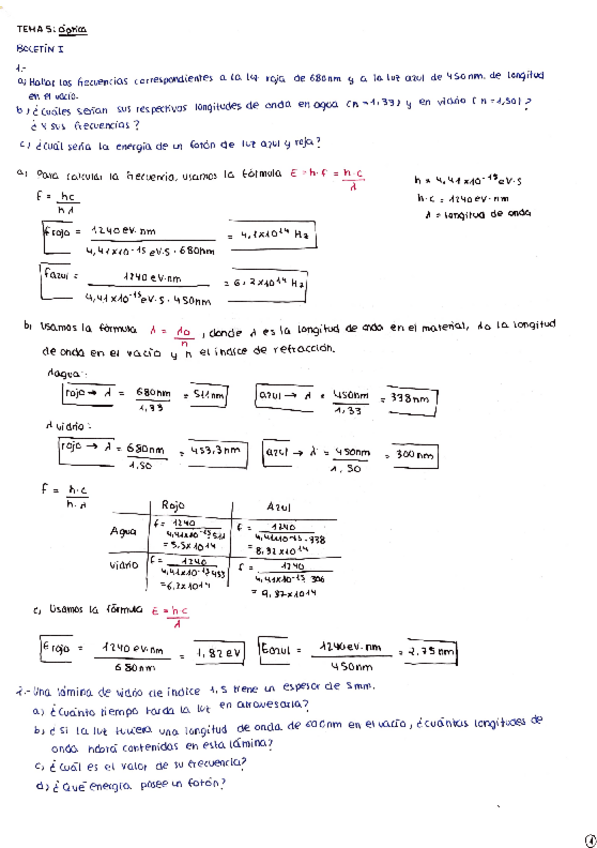 TEMA 5: Óptica
BOLETÍN I
1.-
a) Hallar las frecuencias correspondientes a la luz roja de 680nm y a la luz azul de 450nm. de longitud
en el vacío.
b) ¿Cuáles serían sus respectivas longitudes de onda en agua (n=1,33) y en vidrio (n=1,50)?
¿Y sus frecuencias?
c) ¿Cuál sería la energía de un fotón de luz azul y roja?
a) Para calcular la frecuencia, usamos la fórmula E = h·f = h·c/λ
h = 4,41x10⁻¹⁵ eV·s
f = hc/hλ
h·c = 1240eV·nm
λ = longitud de onda
f roja = 1240 eV·nm / 4,41x10⁻¹⁵ eV·s · 680nm = 4,1x10¹⁴ Hz
f azul = 1240 eV·nm / 4,41x10⁻¹⁵ eV·s · 450nm = 6,2x10¹⁴ Hz
b) Usamos la fórmula λ = λ0/n, donde λ es la longitud de onda en el material, λ0 la longitud
de onda en el vacío y n el índice de refracción.
λ agua:
rojo → λ = 680nm/1,33 = 511nm azul → λ = 450nm/1,33 = 338nm
λ vidrio:
rojo → λ = 680nm/1,50 = 453,3nm azul → λ = 450nm/1,50 = 300nm
f = h·c/h·λ
Rojo Azul
Agua f = 1240/4,41x10⁻¹⁵·511 = 5,5x10¹⁴ f = 1240/4,41x10⁻¹⁵·338 = 8,32x10¹⁴
vidrio f = 1240/4,41x10⁻¹⁵·453 = 6,2x10¹⁴ f = 1240/4,41x10⁻¹⁵·306 = 9,37x10¹⁴
c) Usamos la fórmula E = h·c/λ
E rojo = 1240 eV·nm/680nm = 1,82 eV E azul = 1240eV·nm/450nm = 2,75nm
2.- Una lámina de vidrio de índice 1,5 tiene un espesor de 5mm.
a) ¿Cuánto tiempo tarda la luz en atravesarla?
b) ¿Si la luz tuviera una longitud de onda de 600nm en el vacío, ¿cuántas longitudes de
onda habrá contenidas en esta lámina?
c) ¿Cuál es el valor de su frecuencia?
d) ¿Qué energía posee un fotón?
1